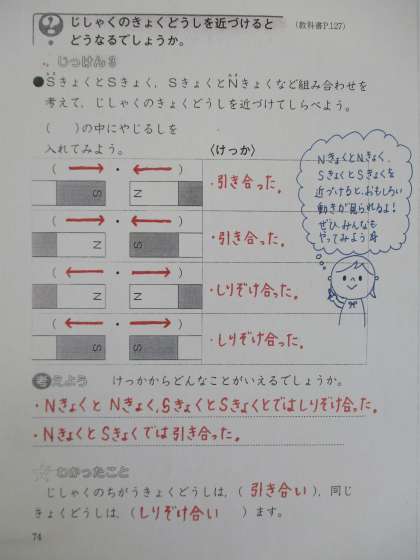 じしゃくのきょくどうしを近づけると
どうなるでしょうか。
(教科書P.127)
じっけん3
●SきょくとSきょく，SきょくとNきょくなど組み合わせを
考えて，じしゃくのきょくどうしを近づけてしらべよう。
(　)の中にやじるしを
入れてみよう。
〈けっか〉
(→・←)
S N
・引き合った。
(→・←)
N S
・引き合った。
(←・→)
N N
・しりぞけ合った。
(←・→)
S S
・しりぞけ合った。
NきょくとNきょく、
SきょくとSきょくを
近づけると、おもしろい
動きが見られるよ!
ぜひ、みんなも
やってみよう
考えよう　けっかからどんなことがいえるでしょうか。
・Nきょくと Nきょく、SきょくとSきょくとではしりぞけ合った。
・NきょくとSきょくでは引き合った。
わかったこと
じしゃくのちがうきょくどうしは，(引き合い)，同じ
きょくどうしは，(しりぞけ合い　)ます。
74